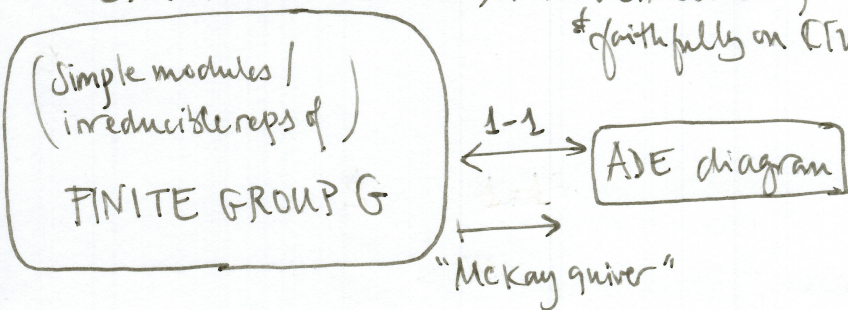 faithfully on
(Simple modules /
irreducible reps of)
FINITE GROUP G
1-1
ADE diagram
"McKay quiver"